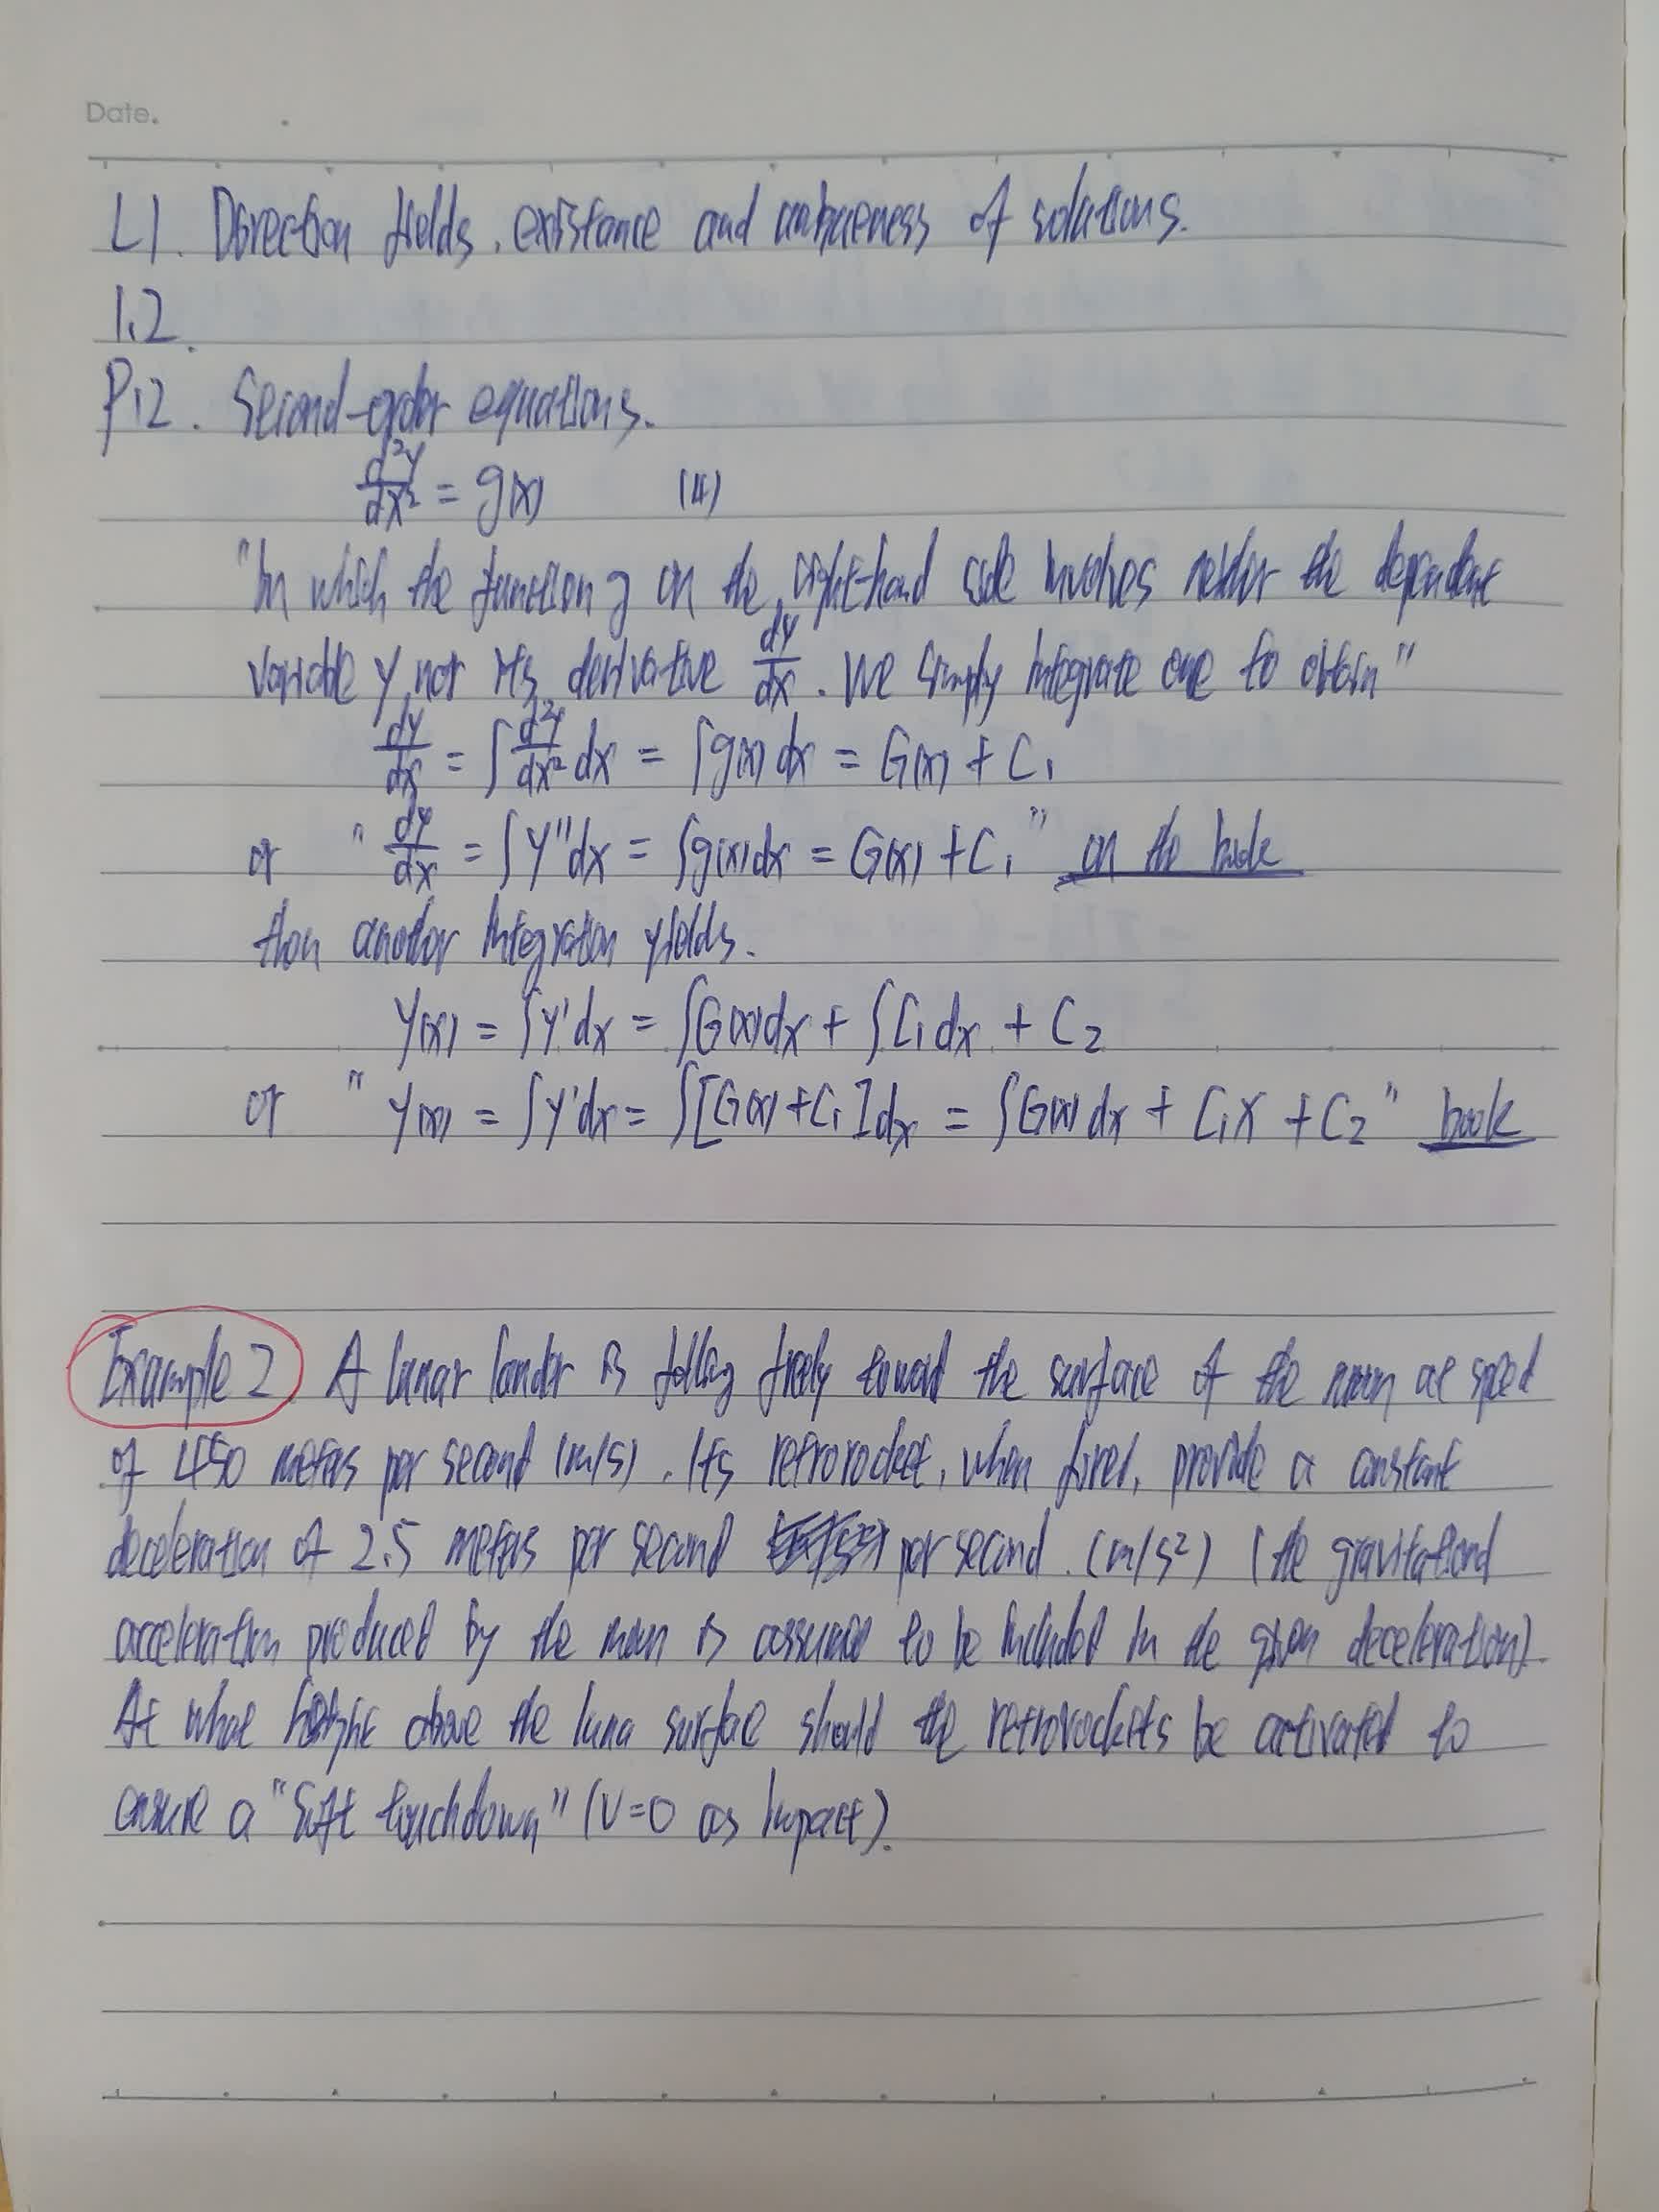 Date.
L1. Direction fields, existance and uniqueness of solutions.
1.2.
P12. Second-order equations.
d²y/dx² = g(x) (4)
"In which the function g on the right-hand side involves neither the dependent
variable y nor its derivative dy/dx. We simply integrate one to obtain"
dy/dx = ∫ d²y/dx² dx = ∫g(x) dx = G(x) + C₁
or " dy/dx = ∫y''dx = ∫g(x)dx = G(x) + C₁ " on the book
then another integration yields.
y(x) = ∫y'dx = ∫G(x)dx + ∫C₁dx + C₂
or " y(x) = ∫y'dx = ∫[G(x)+C₁]dx = ∫G(x)dx + C₁x + C₂ " book
Example 2 A lunar lander is falling freely toward the surface of the moon at speed
of 450 meters per second (m/s). Its retrorocket, when fired, provide a constant
deceleration of 2.5 meters per second per second. (m/s²) (the gravitational
acceleration produced by the moon is assumed to be included in the given deceleration).
At what height above the luna surface should the retrorockets be activated to
ensure a "Soft touchdown" (V=0 as impact).